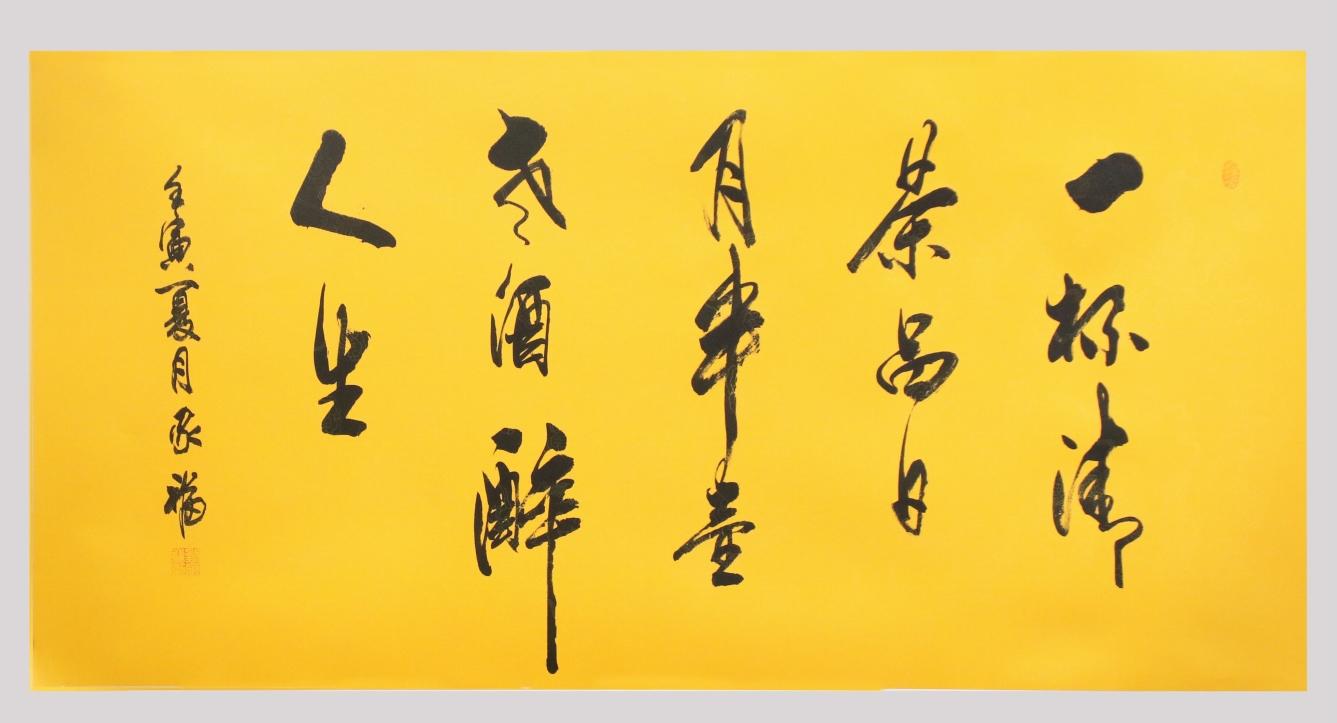 一杯清
茶品日
月半壶
老酒醉
人生
壬寅夏月家福